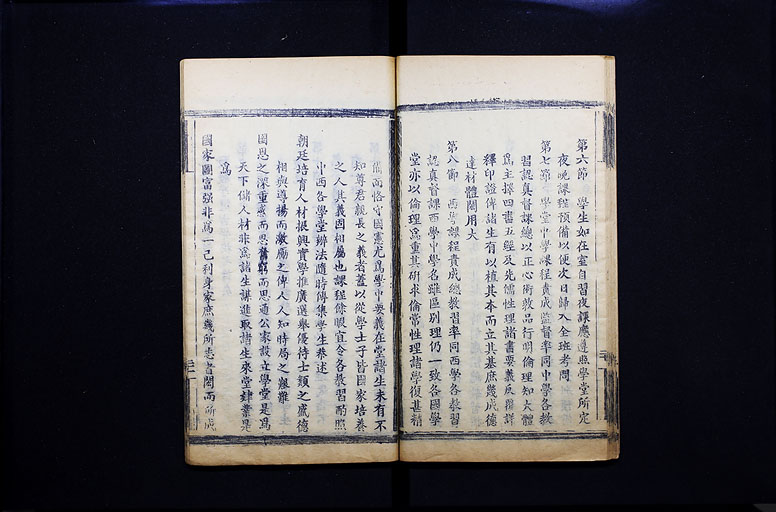 第六節 學生如在室自習夜課應遵照學堂所定
夜晚課程預備以便次日歸入全班考問
第七節 學堂中學課程責成監督率同中學各教
習認真督課總以正心術敦品行明倫理知大體
為主擇四書五經及先儒性理諸書要義反覆詳
釋印證俾諸生有以植其本而立其基庶幾成德
達材體關用大
第八節 西學課程責成總教習率同西學各教習
認真督課西學中學名雖區別理仍一致各國學
堂亦以倫理為重其研求倫常性理諸學復甚精
備而恪守國憲尤為學中要義在堂諸生未有不
知尊君親長之義者蓋以從學士子皆國家培養
之人其義固相屬也課程餘暇宜令各教習酌照
中西各學堂辦法隨時傳集學生恭述
朝廷培育人材振興實學推廣選舉優待士類之盛德
相與導揚而激勵之俾人人知時局之艱難
國恩之深重感而思奮窮而思通公家設立學堂是為
天下儲人材非為諸生謀進取諸生來堂肄業是
為
國家圖富强非為一己利身家庶幾所志者閎而所成